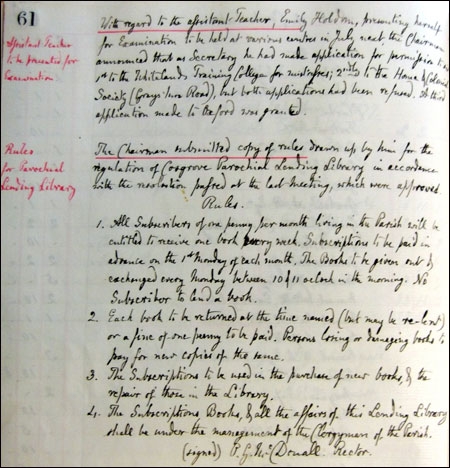 61
Assistant Teacher
to be presented for
Examination.
With regard to the assistant Teacher, Emily Holdom, presenting herself
for Examination to be held at various centres in July next the Chairman
announced that as Secretary he had made application for permission
1st to the Whiteland, Training College for mistresses; 2ndly to the Home & Colonial
Society (Grays Inn Road), but both applications had been refused. A third
application made to Oxford was granted.
Rules
for Parochial
Lending Library
The Chairman submitted copy of rules drawn up by him for the
regulation of Cosgrove Parochial Lending Library in accordance
with the resolution passed at the last Meeting, which were approved
Rules.
1. All Subscribers of one penny per month living in the Parish will be
entitled to receive one book every week. Subscriptions to be paid in
advance on the 1st Monday of each month. The Books to be given out &
exchanged every Monday between 10 & 11 o'clock in the morning. No
Subscriber to lend a book.
2. Each book to be returned at the time named (but may be re-lent)
or a fine of one penny to be paid. Persons losing or damaging books to
pay for new copies of the same.
3. The Subscriptions to be used in the purchase of new books, & the
repair of those in the Library.
4. The Subscriptions Books, & all the affairs of this Lending Library
shall be under the management of the Clergyman of the Parish.
(signed) P. G. McDouall. Rector.